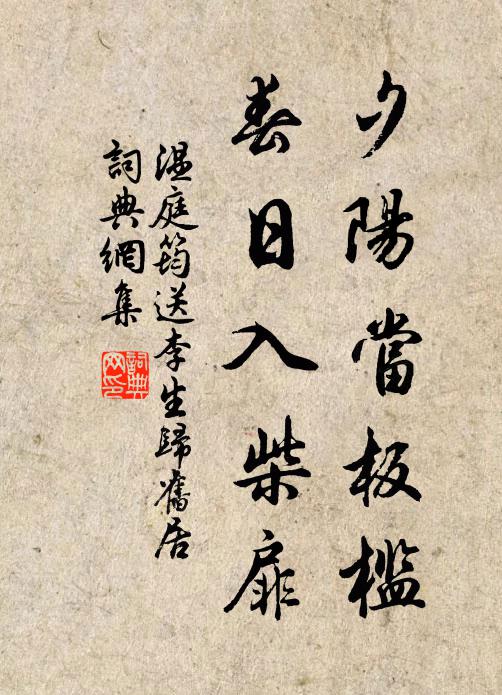 夕陽當板檻
春日入柴扉
溫庭筠送李生歸舊居
詞典網集
詞典网印